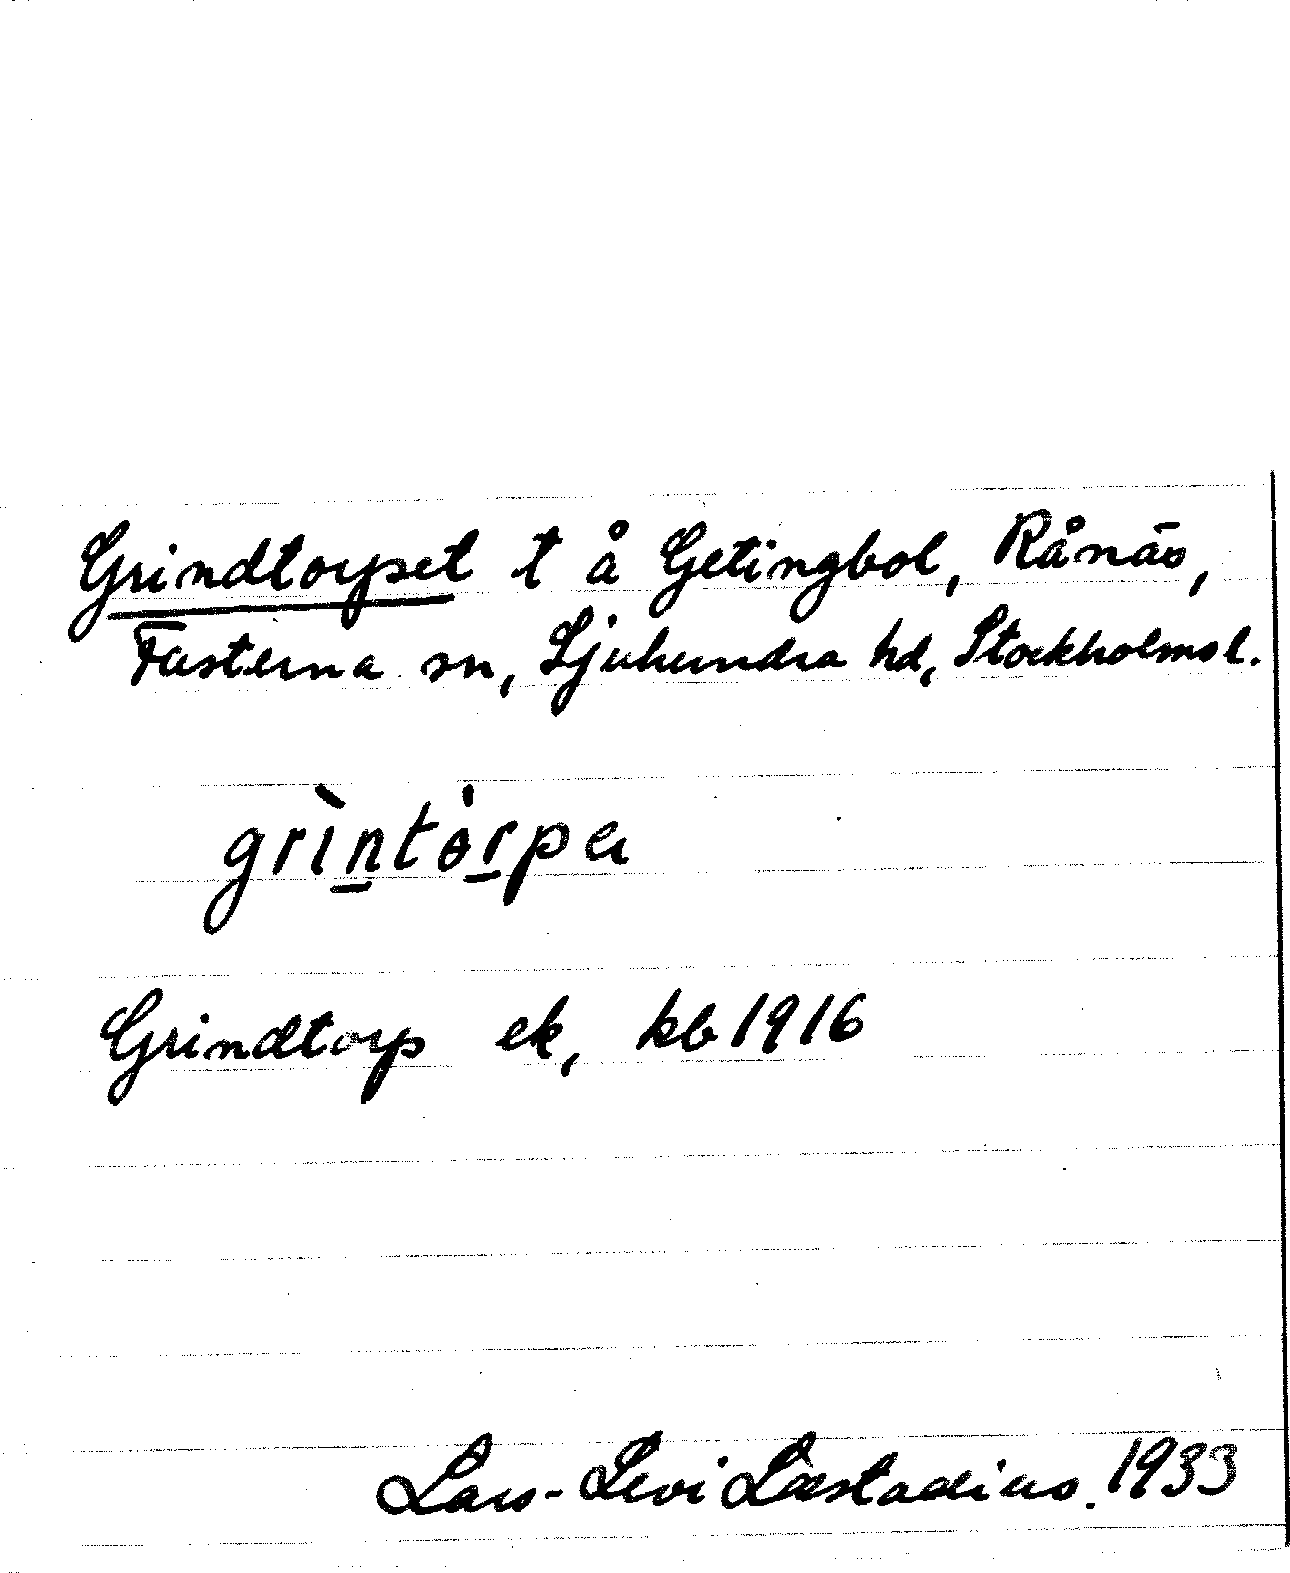 Grindtorpet t å Getingbol, Rånäs,
Fasterna sn, Sjuhundra hd, Stockholms l.
grìn̲tȯr̲pa
Grindtorp ek, kb 1916
Lars-Levi Læstadius. 1933